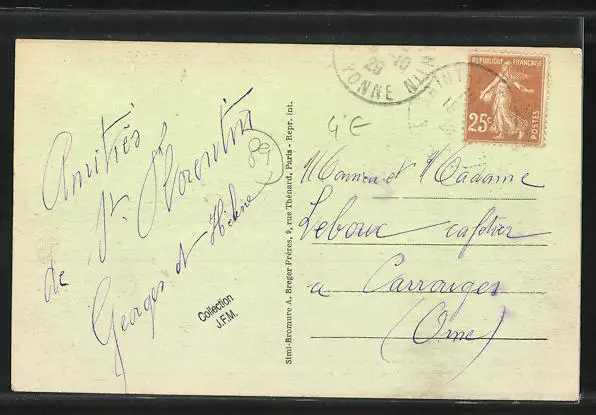 Amitiés
de St. Florentin
Georges et Hélène
89
Collection
J.F.M.
Simi-Bromure A. Breger Frères, 9, rue Thénard, Paris - Repr. int.
4E
28
YONNE
SAINT
REPUBLIQUE FRANÇAISE
25c
POSTES
Monsieur et Madame
Lebouc cafetier
a Carrouges
(Orne)